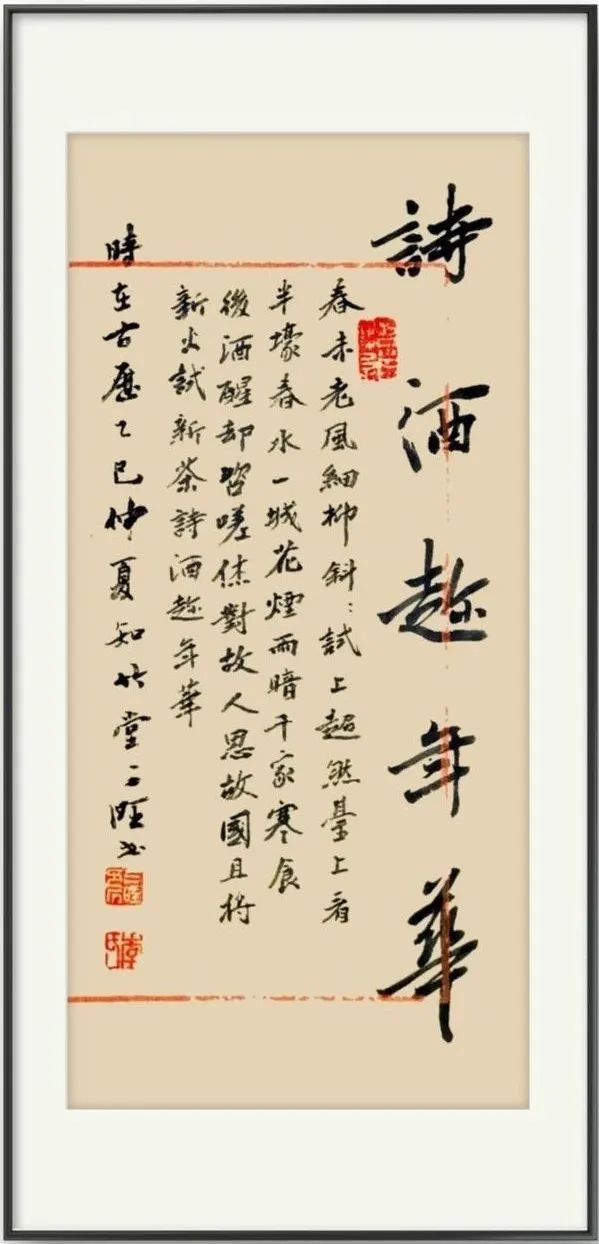 詩酒趁年華
春未老風細柳斜:試上超然臺上看
半壕春水一城花煙雨暗千家寒食
後酒醒却咨嗟休對故人思故國且將
新火試新茶詩酒趁年華
時在古歷乙巳仲夏知竹堂